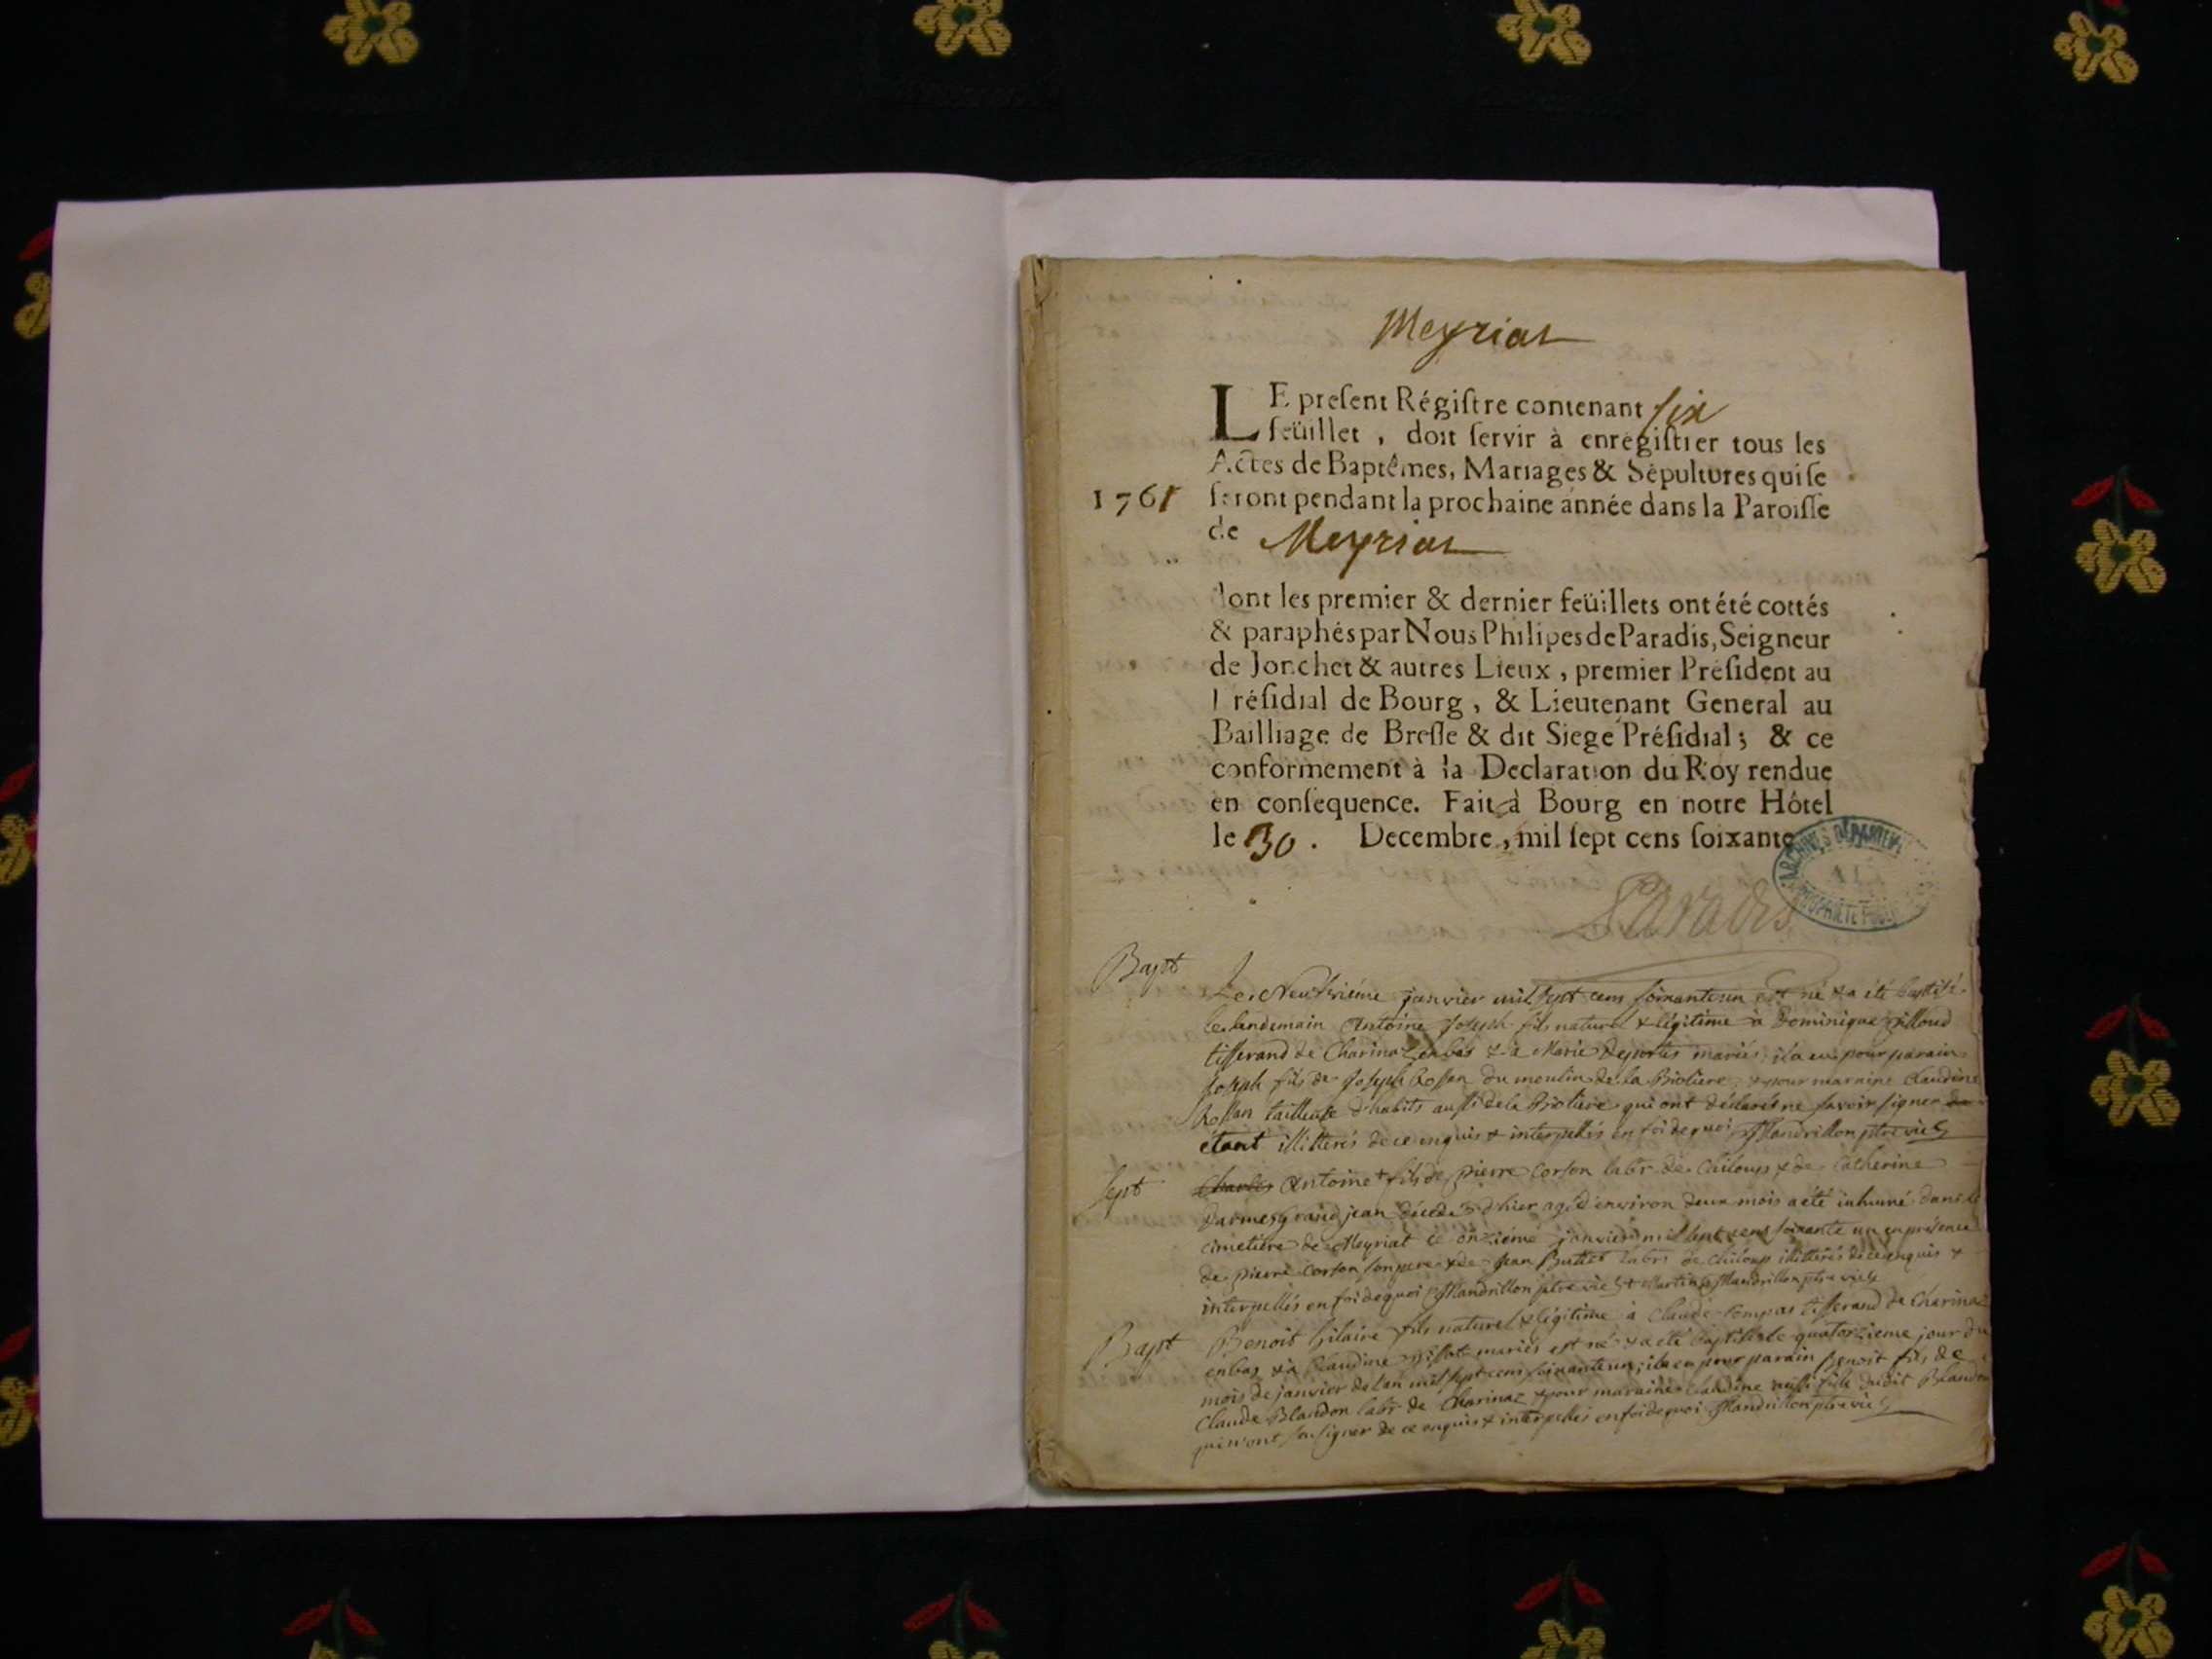 Meyriat
LE present Régistre contenant six
feüillet, doit servir à enregistrer tous les
Actes de Baptêmes, Mariages & Sépultures qui se
1761 feront pendant la prochaine année dans la Paroisse
de Meyriat
dont les premier & dernier feüillets ont été cottés
& paraphés par Nous Philipes de Paradis, Seigneur
de Jonchet & autres Lieux, premier Président au
Présidial de Bourg, & Lieutenant General au
Bailliage de Bresse & dit Siege Présidial; & ce
conformement à la Declaration du Roy rendue
en consequence. Fait à Bourg en notre Hôtel
le 30. Decembre, mil sept cens soixante
ARCHIVES DÉPARTEM
PROPRIÉTÉ PUBL
Paradis
Bapt
Le Neuvieme janvier mil sept cens soixante un est né & a été baptisé
le lendemain Antoine Joseph fils naturel & légitime à Dominique
tisserand de Charinaz enbas & à Marie Desportes mariés, il a eu pour parain
Joseph fils de Joseph Rossan du moulin de la Violiere & pour maraine Claudine
Rossan tailleuse d'habits aussi de la Violiere qui ont déclarés ne savoir signer
étant illitterés de ce enquis & interpellés en foi de quoi Mandrillon ptre vic
Sept Charles Antoine + fils de pierre Corson labr de Chiloup & de Catherine
grand jean décédé d'hier agé d'environ deux mois a été inhumé dans le
cimetiere de Meyriat ce onzieme janvier mil sept cens soixante un en présence
de pierre Corson son pere & de Jean Buttet labr de Chiloup illitterés de ce enquis &
interpellés en foi de quoi Mandrillon ptre vic + Martin Mandrillon ptre vic
Bapt Benoit hilaire fils naturel & légitime à Claude Compas tisserand de Charinaz
enbas & à Claudine mariés est né & a été baptisé le quatorzieme jour du
mois de janvier de l'an mil sept cens soixante un; il a eu pour parain Benoit fils de
Claude Blandon labr de Charinaz & pour maraine Claudine aussi fille dudit Blandon
qui n'ont su signer de ce enquis & interpellés en foi de quoi Mandrillon ptre vic